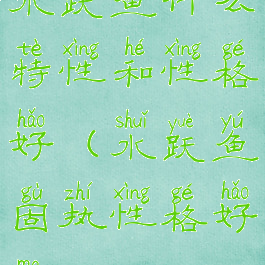 水跃鱼什么
tè xìng hé xìng gé
特性和性格
hǎo shuǐ yuè yú
好（水跃鱼
gù zhí xìng gé hǎo
固执性格好
me